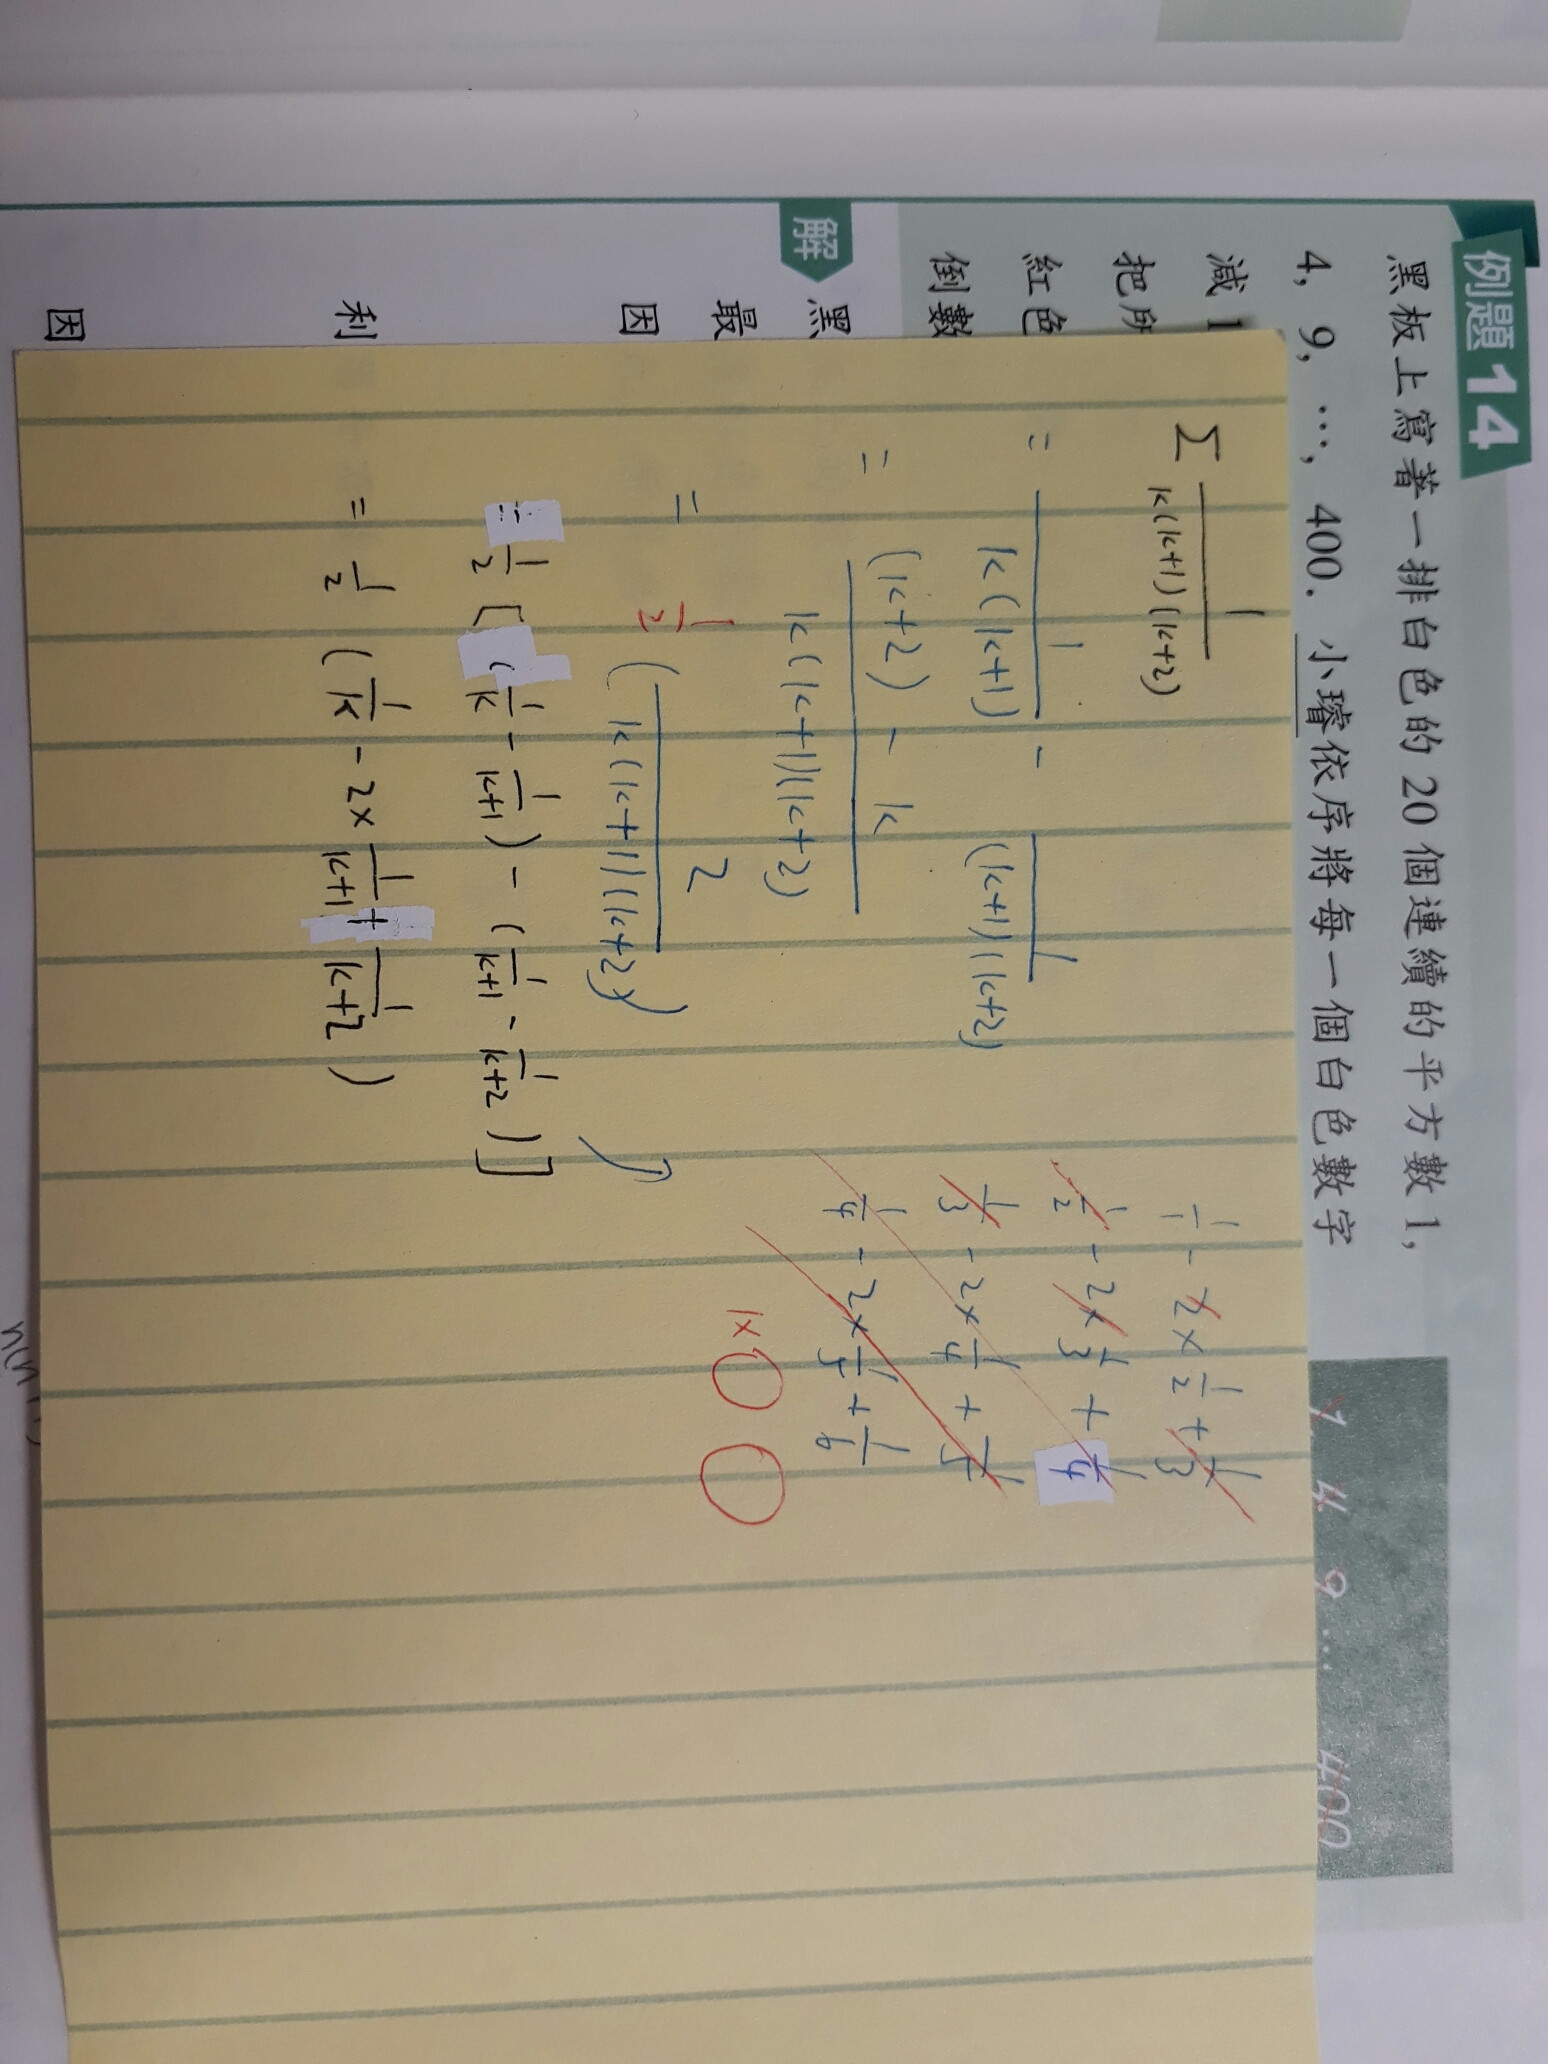 例題14
黑板上寫著一排白色的 20 個連續的平方數 1,
4, 9, …, 400. 小璿依序將每一個白色數字
減 1
把所
紅色
倒數
1 4 9 … 400
解
黑
最
因
利
因
Σ 1/(k(k+1)(k+2))
= 1/(k(k+1)) - 1/((k+1)(k+2))
= ((k+2) - k)/(k(k+1)(k+2))
= 1/2 ( 2/(k(k+1)(k+2)) )
= 1/2 [ ( 1/k - 1/(k+1) ) - ( 1/(k+1) - 1/(k+2) ) ]
= 1/2 ( 1/k - 2× 1/(k+1) + 1/(k+2) )
1/1 - 2× 1/2 + 1/3
1/2 - 2× 1/3 + 1/4
1/3 - 2× 1/4 + 1/5
1/4 - 2× 1/5 + 1/6